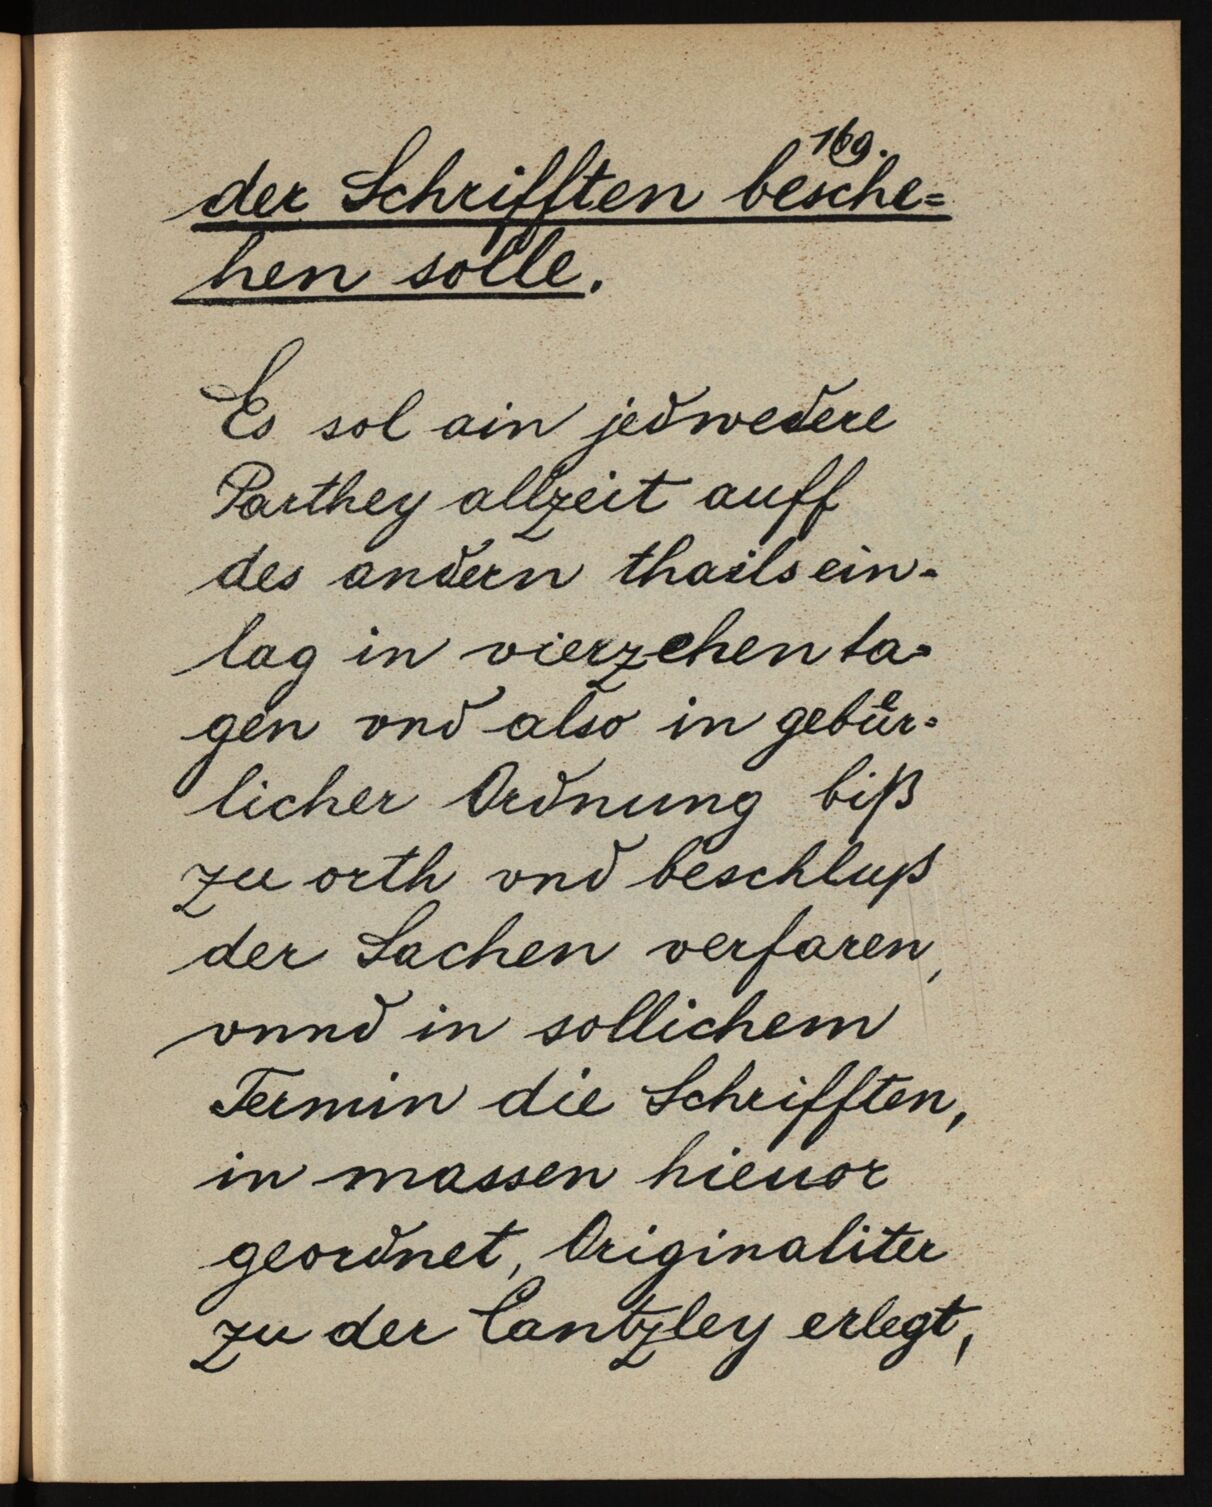 169.
der Schrifften besche=
hen solle.
Es sol ain jedwedere
Parthey allzeit auff
des andern thails ein=
lag in vierzehen ta=
gen vnd also in gebuͤr=
licher Ordnung biß
zu orth vnd beschluß
der Sachen verfaren,
vnnd in sollichem
Termin die Schrifften,
in massen hieuor
geordnet, Originaliter
zu der Cantzley erlegt,